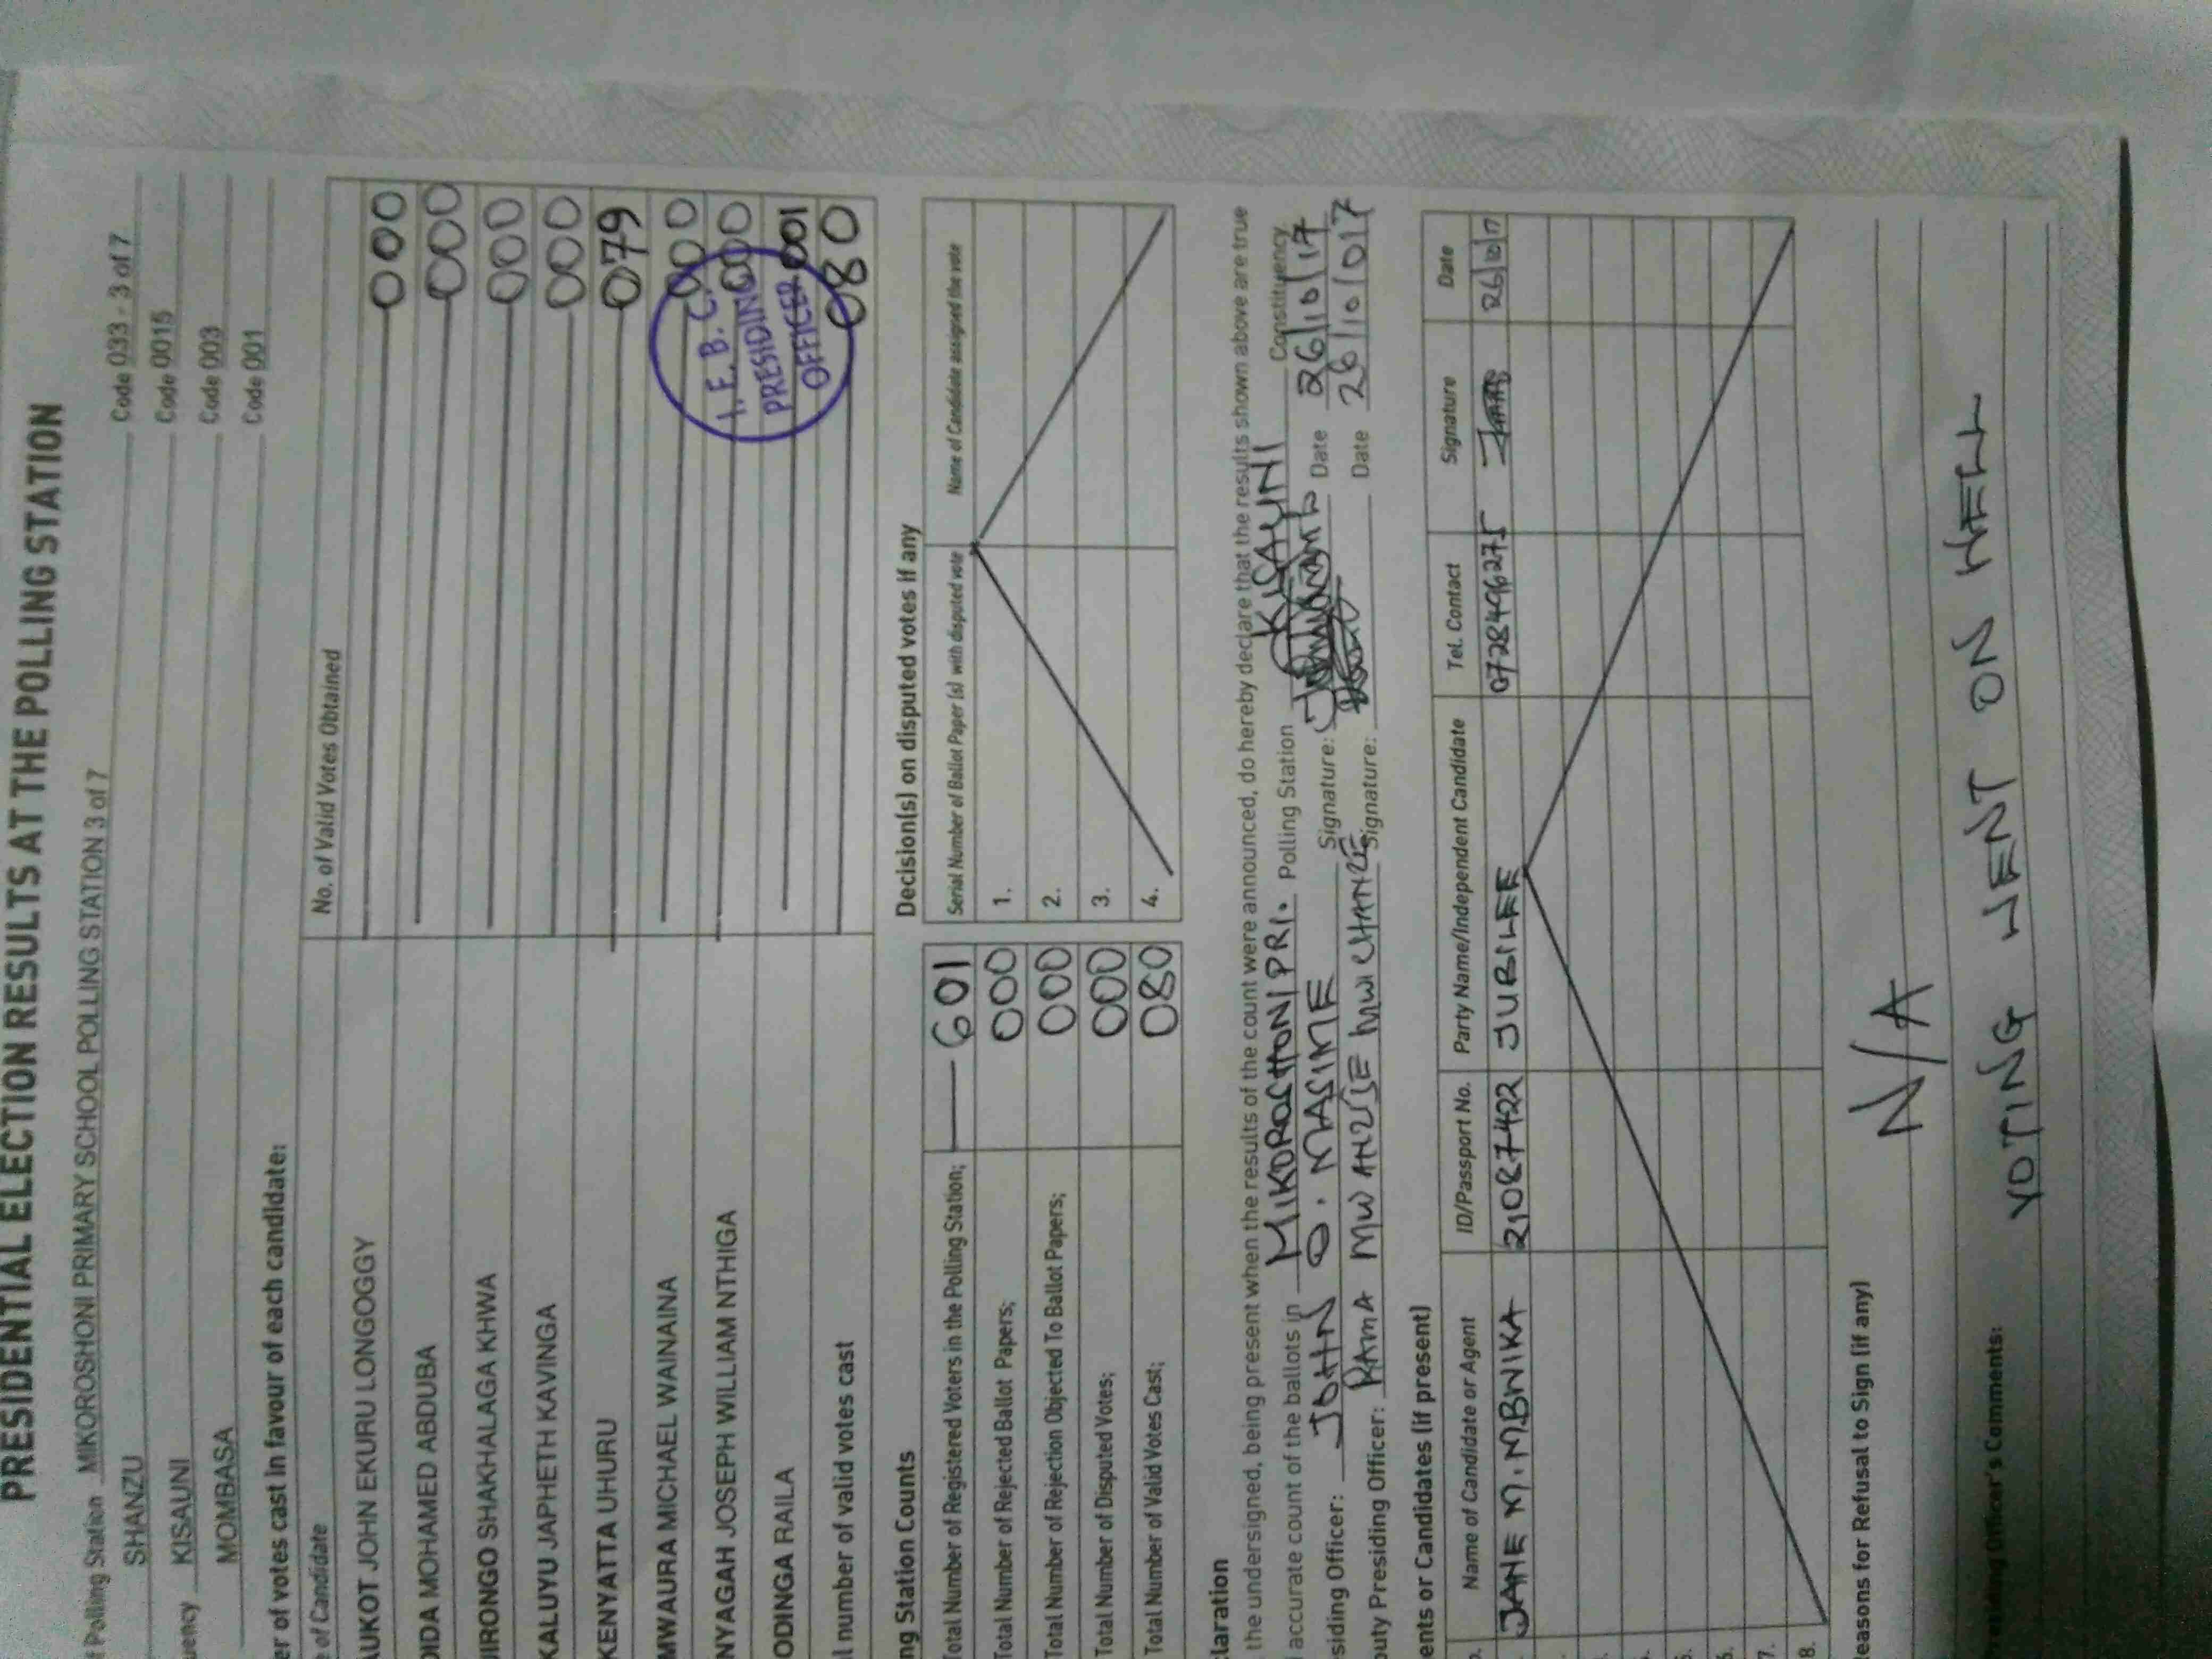 PRESIDENTIAL ELECTION RESULTS AT THE POLLING STATION
f Polling Station MIKOROSHONI PRIMARY SCHOOL POLLING STATION 3 of 7 Code 033 - 3 of 7
SHANZU Code 0015
uency KISAUNI Code 003
MOMBASA Code 001
er of votes cast in favour of each candidate:
e of Candidate No. of Valid Votes Obtained
AUKOT JOHN EKURU LONGOGGY 000
DIDA MOHAMED ABDUBA 000
JIRONGO SHAKHALAGA KHWA 000
KALUYU JAPHETH KAVINGA 000
KENYATTA UHURU 079
MWAURA MICHAEL WAINAINA 000
NYAGAH JOSEPH WILLIAM NTHIGA 000
ODINGA RAILA 001
l number of valid votes cast 080
I.E.B.C.
PRESIDING
OFFICER
ng Station Counts Decision(s) on disputed votes if any
Total Number of Registered Voters in the Polling Station; 601 Serial Number of Ballot Paper (s) with disputed vote Name of Candidate assigned the vote
Total Number of Rejected Ballot Papers; 000 1.
Total Number of Rejection Objected To Ballot Papers; 000 2.
Total Number of Disputed Votes; 000 3.
Total Number of Valid Votes Cast; 080 4.
laration
the undersigned, being present when the results of the count were announced, do hereby declare that the results shown above are true
accurate count of the ballots in MIKOROSHONI PRI. Polling Station KISAUNI Constituency
siding Officer: JOHN O. MASIME Signature: Date 26/10/17
puty Presiding Officer: RAMA Signature: Date 26/10/017
ents or Candidates (if present)
Name of Candidate or Agent ID/Passport No. Party Name/Independent Candidate Tel. Contact Signature Date
JANE M. MBWIKA 21087422 JUBILEE 0728496275 26/10/17
6.
7.
8.
easons for Refusal to Sign (if any)
N/A
Officer's Comments:
VOTING WENT ON WELL